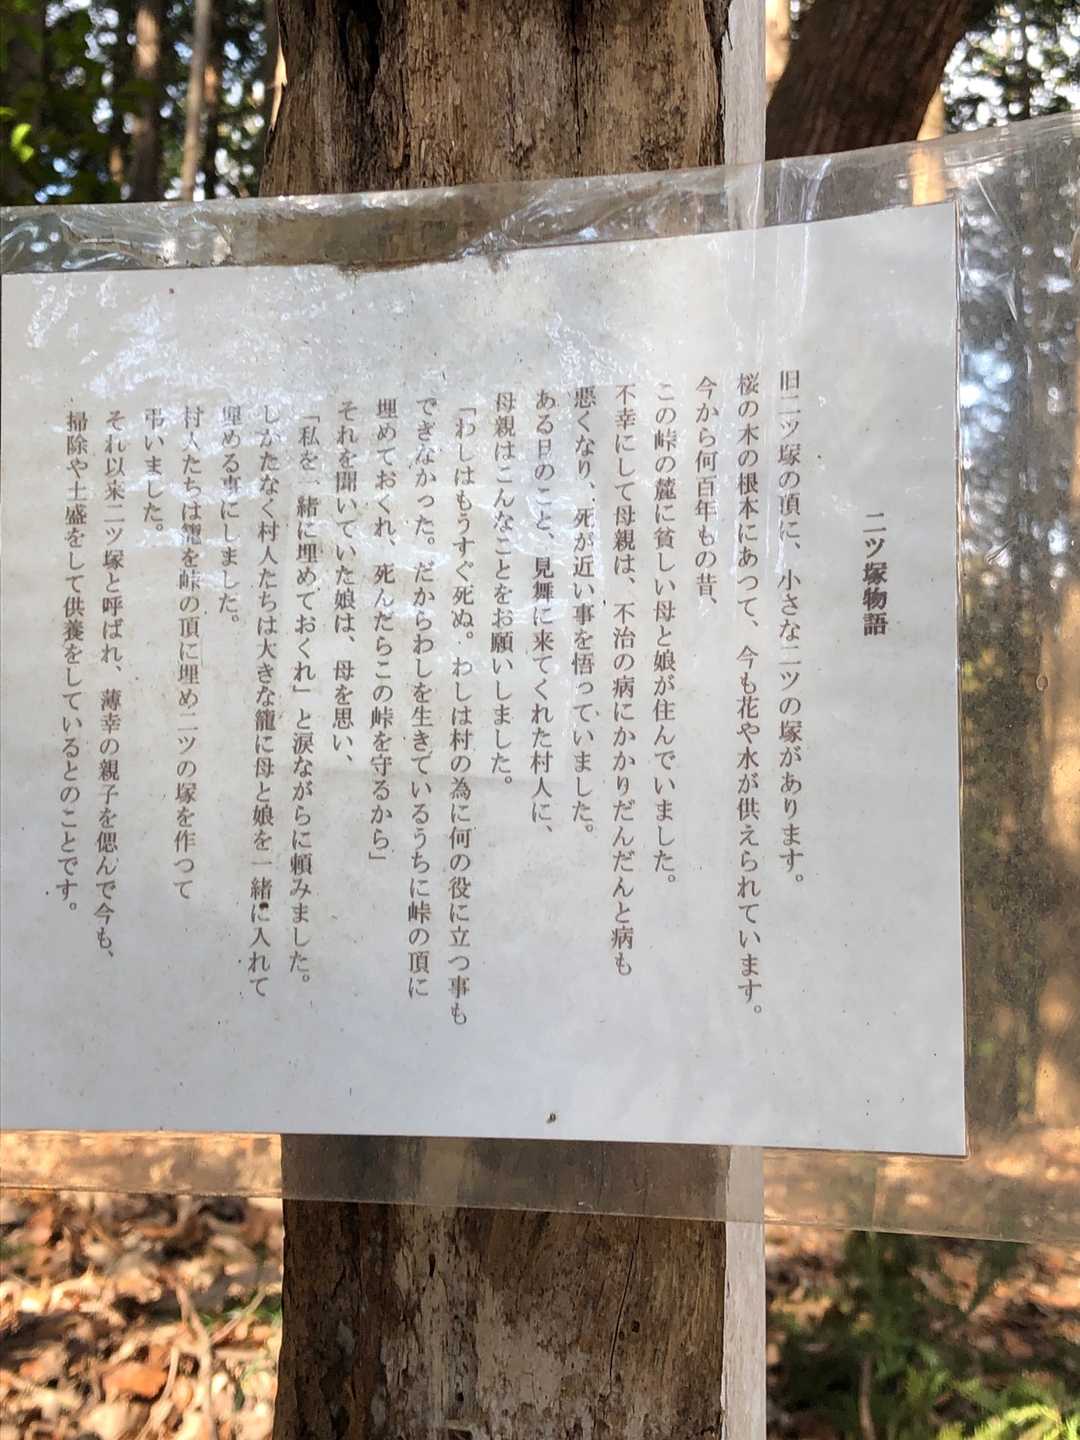 二ツ塚物語
旧二ツ塚の頂に、小さな二ツの塚があります。
桜の木の根本にあって、今も花や水が供えられています。
今から何百年もの昔、
この峠の麓に貧しい母と娘が住んでいました。
不幸にして母親は、不治の病にかかりだんだんと病も
悪くなり、死が近い事を悟っていました。
ある日のこと、見舞に来てくれた村人に、
母親はこんなことをお願いしました。
「わしはもうすぐ死ぬ。わしは村の為に何の役に立つ事も
できなかった。だからわしを生きているうちに峠の頂に
埋めておくれ、死んだらこの峠を守るから」
それを聞いていた娘は、母を思い、
「私を一緒に埋めておくれ」と涙ながらに頼みました。
しかたなく村人たちは大きな籠に母と娘を一緒に入れて
埋める事にしました。
村人たちは籠を峠の頂に埋め二ツの塚を作つて
弔いました。
それ以来二ツ塚と呼ばれ、薄幸の親子を偲んで今も、
掃除や土盛をして供養をしているとのことです。